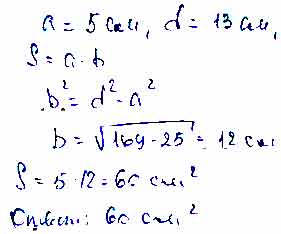 a = 5 см, d = 13 см,
S = a · b
b² = d² - a²
b = √169 - 25 = 12 см
S = 5 · 12 = 60 см²
Ответ: 60 см²